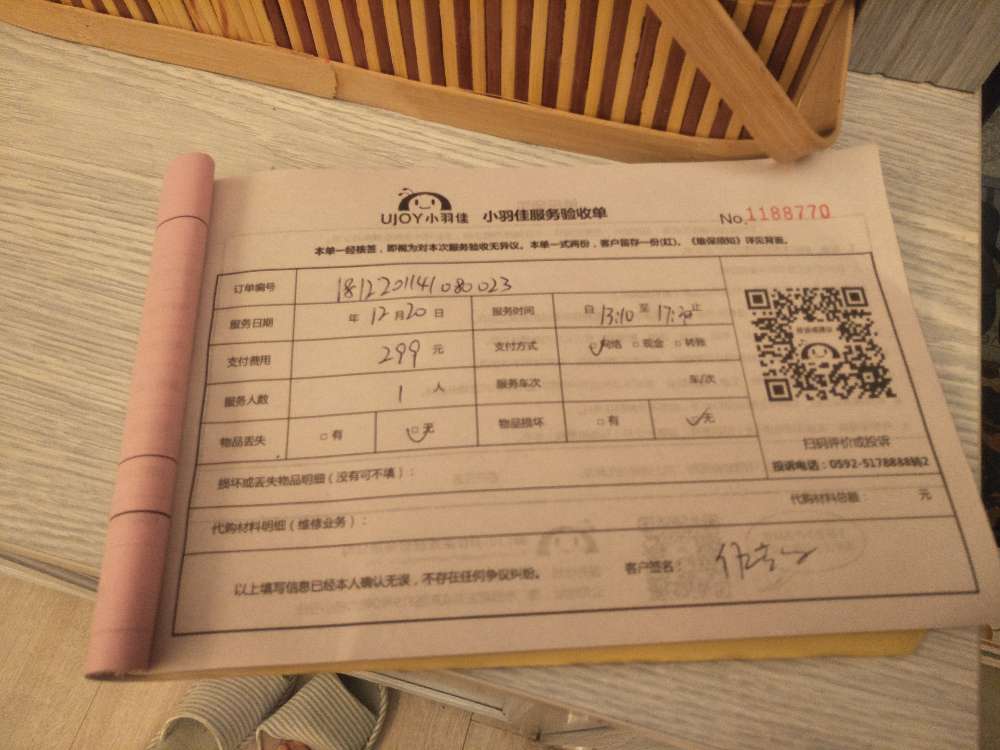 UJOY小羽佳 小羽佳服务验收单 No.1188770
本单一经核签，即视为对本次服务验收无异议。本单一式两份，客户留存一份(红)。《维保须知》详见背面。
订单编号 1812201141080023
服务日期 年 12 月 20 日 服务时间 自 13:10 至 17:20 止
支付费用 299 元 支付方式 ☑网络 □现金 □转账
服务人数 1 人 服务车次 车/次
物品丢失 □有 ☑无 物品损坏 □有 ☑无
扫码评价或投诉
投诉电话：0592-5178888转2
损坏或丢失物品明细（没有可不填）：
代购材料明细（维修业务）： 代购材料总额： 元
以上填写信息已经本人确认无误，不存在任何争议纠纷。 客户签名：